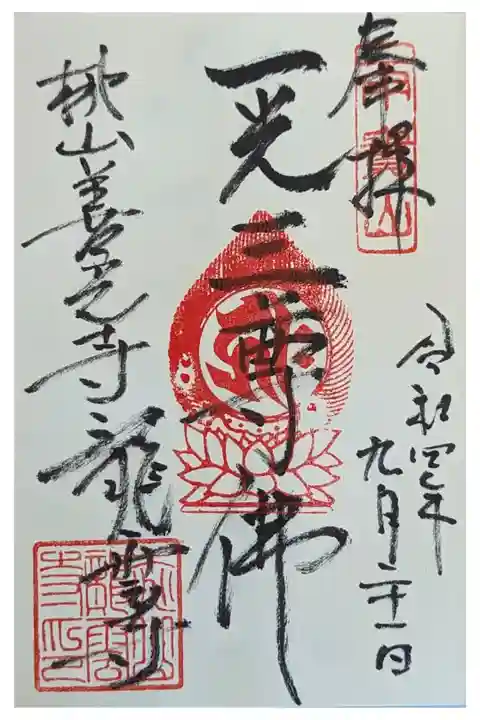 奉拝
令和四年
九月二十一日
一光三尊佛
桃山善光寺龍雲寺